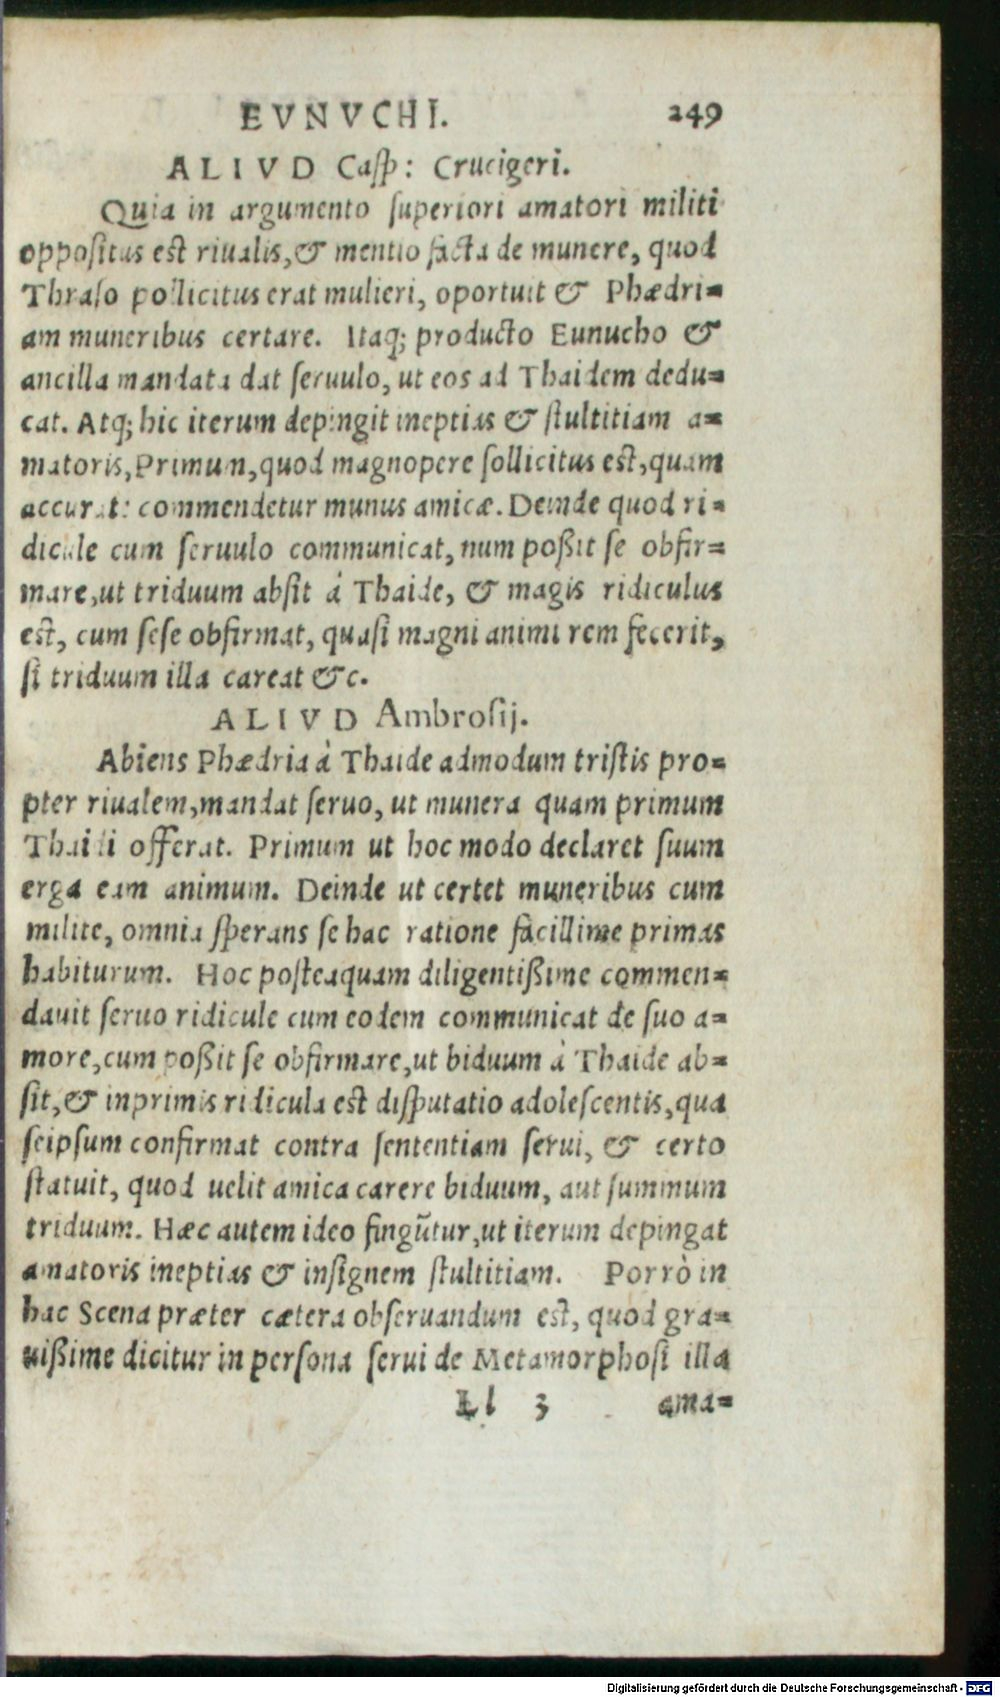 EVNVCHI. 249
ALIVD Casp: Crucigeri.
Quia in argumento superiori amatori militi
oppositus est riualis, & mentio facta de munere, quod
Thraso pollicitus erat mulieri, oportuit & Phædri=
am muneribus certare. Itaq; producto Eunucho &
ancilla mandata dat seruulo, ut eos ad Thaidem dedu=
cat. Atq; hic iterum depingit ineptias & stultitiam a=
matoris, Primum, quod magnopere sollicitus est, quam
accurate commendetur munus amicæ. Deinde quod ri=
dicule cum seruulo communicat, num poßit se obfir=
mare, ut triduum absit à Thaide, & magis ridiculus
est, cum sese obfirmat, quasi magni animi rem fecerit,
si triduum illa careat &c.
ALIVD Ambrosij.
Abiens Phædria à Thaide admodum tristis pro=
pter riualem, mandat seruo, ut munera quam primum
Thaidi offerat. Primum ut hoc modo declaret suum
erga eam animum. Deinde ut certet muneribus cum
milite, omnia sperans se hac ratione facillime primas
habiturum. Hoc posteaquam diligentißime commen=
dauit seruo ridicule cum eodem communicat de suo a=
more, cum poßit se obfirmare, ut biduum à Thaide ab=
sit, & inprimis ridicula est disputatio adolescentis, qua
seipsum confirmat contra sententiam serui, & certo
statuit, quod uelit amica carere biduum, aut summum
triduum. Hæc autem ideo fingũtur, ut iterum depingat
amatoris ineptias & insignem stultitiam. Porrò in
hac Scena præter cætera obseruandum est, quod gra=
uißime dicitur in persona serui de Metamorphosi illa
Ll 3 ama=
Digitalisierung gefördert durch die Deutsche Forschungsgemeinschaft - DFG